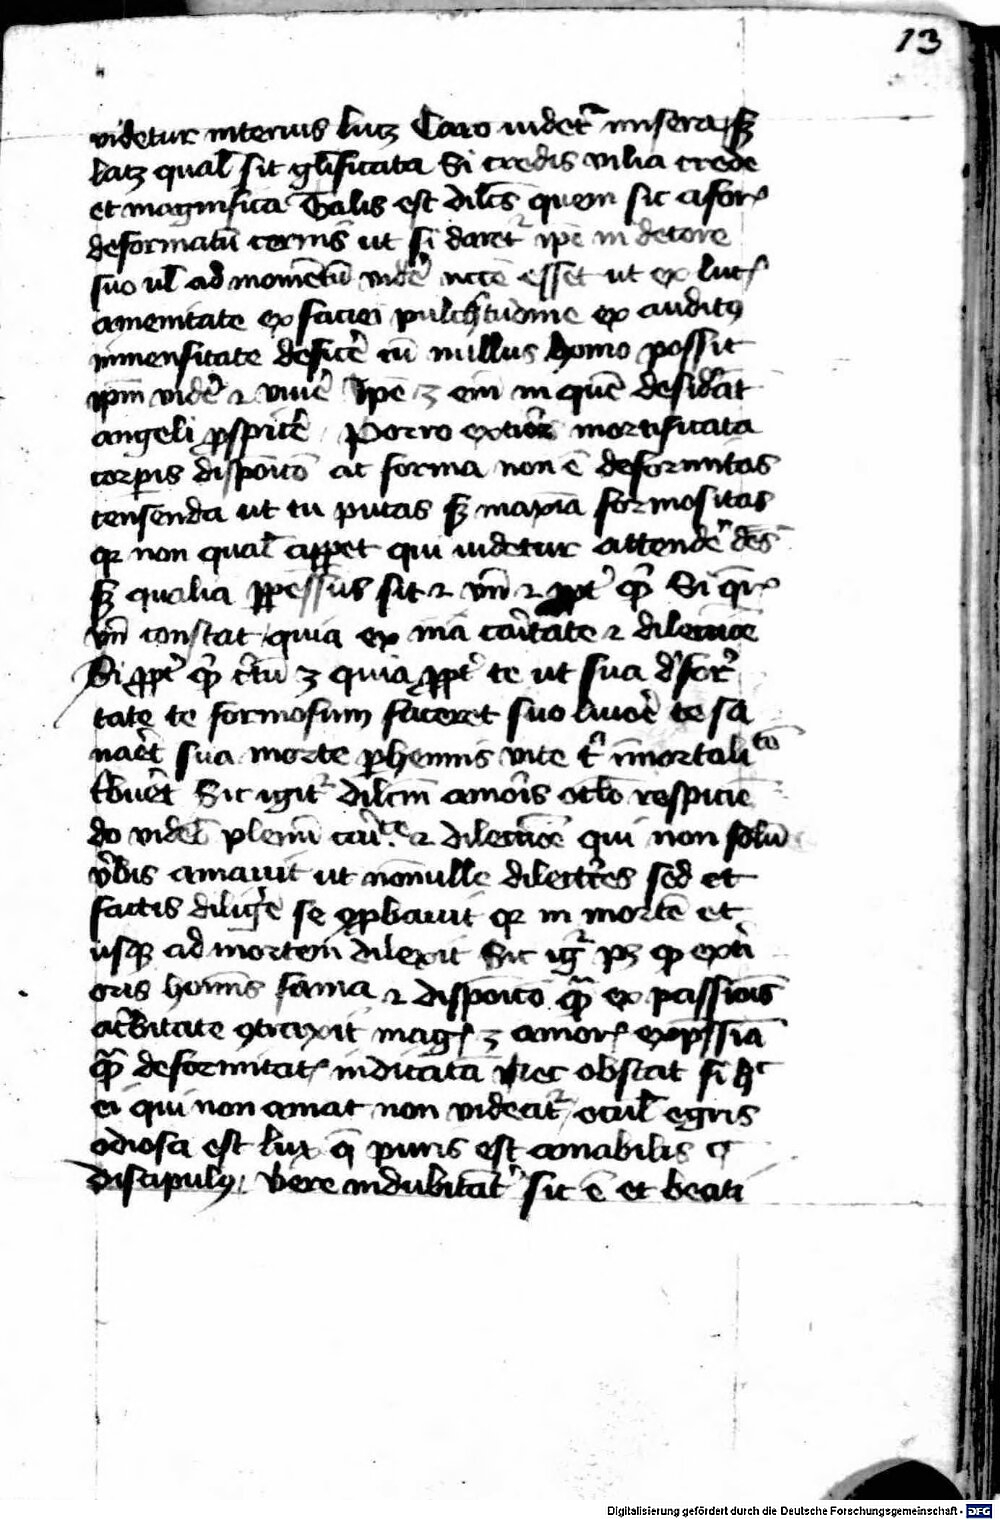 13
videtur interius lucʒ Caro videtʳ misera sʒ
latʒ qual̄ sit gl̄ificata Si credis vilia crede
et magnifica Talis est dilc̄s quem sic a for
deformatū cernis ut si daret ip̄e in decore
suo ul̄ ad momentū viderͥ necc̄e esset ut ex luc
amenitate ex faciei pulchͥtudine ex auditꝰ
inmensitate deficeͥ cū nullus homo possit
ip̄m videͥ ⁊ viveͥ Ip̄e ʒ eni in quē desidāt
angeli ꝓspiceͥ Porro exterior mortificata
corpis dispoicō ac forma non ē deformitas
censenda ut tu putas sʒ maxīa formositas
qꝛ non qual̄ appet qui videtur attendeͥ des
sʒ qualia ꝑpessus sit ⁊ vn̄ ⁊ ꝓpt qͥ Si qͥr
vn̄ constat quia ex niā caͥtate ⁊ dilectiōe
Si ꝓpt qͥ cͥtū ʒ quia ꝓpt te ut sua dͥforͥ
tate te formosum faceret suo livoͥe te sa
naͥet sua morte ꝑhennis vite tͥ inmortalitͣ
tͥbuet Sic igit dilcm amoris oclo respicie
do videb plenū caͥtͣte ⁊ dilectiōe qui non solū
vͥbis amavit ut nōnulle dilectͥces sed et
factis diligeͥe se ꝓbavit qꝛ in mortē et
usqꝫ ad mortem dilexit Sic igͥ pʒ qͦ exti
oris hoīnis fama ⁊ dispoicō qͣ ex passiōis
acͥbitate ꝯtraxit mag ʒ amor exp̄ssiā
qͣ deformitat indicatā Nec obstat si hͨ
ei qui non amat non videat ocul̄ egris
odiosa est lux q̄ puris est amabilis ¶
discipulꝰ Vere indubitāt sic ē et beati
Digitalisierung gefördert durch die Deutsche Forschungsgemeinschaft - DFG